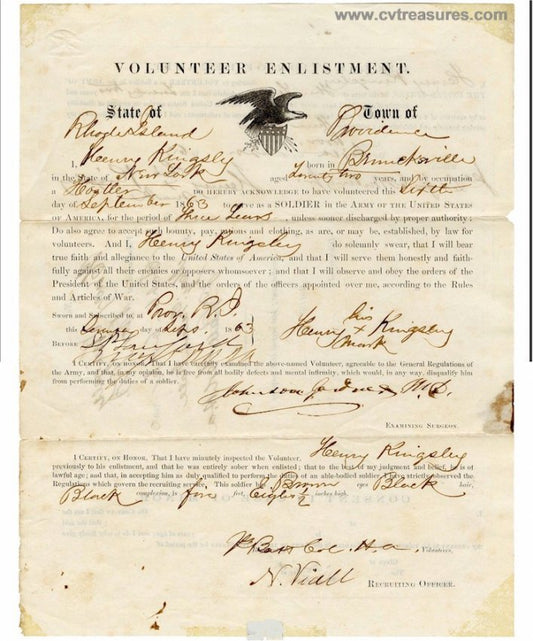 www.cvtreasures.com
VOLUNTEER ENLISTMENT.
State of Town of
Rhode Island Providence
I, Henry Kingsly born in Bruncksville
in the State of New York aged Twenty two years, and by occupation
a Hostler DO HEREBY ACKNOWLEDGE to have volunteered this Sixth
day of September 1863 to serve as a SOLDIER in the ARMY OF THE UNITED STATES
OF AMERICA, for the period of Three Years, unless sooner discharged by proper authority:
Do also agree to accept such bounty, pay, rations and clothing, as are, or may be, established, by law for
volunteers. And I, Henry Kingsley do solemnly swear, that I will bear
true faith and allegiance to the United States of America, and that I will serve them honestly and faith-
fully against all their enemies or opposers whomsoever; and that I will observe and obey the orders of the
President of the United States, and the orders of the officers appointed over me, according to the Rules
and Articles of War.
SWORN and SUBSCRIBED to, at Prov. R.I.
this day of Sept. 1863 his
Henry x Kingsley
BEFORE mark
I CERTIFY, ON HONOR, That I have carefully examined the above-named Volunteer, agreeable to the General Regulations of
the Army, and that, in my opinion, he is free from all bodily defects and mental infirmity, which would, in any way, disqualify him
from performing the duties of a soldier.
Johnson Gardner M.D.
EXAMINING SURGEON.
I CERTIFY, ON HONOR, That I have minutely inspected the Volunteer, Henry Kingsley
previously to his enlistment, and that he was entirely sober when enlisted; that to the best of my judgment and belief, he is of
lawful age; and that, in accepting him as duly qualified to perform the duties of an able-bodied soldier, I have strictly observed the
Regulations which govern the recruiting service. This soldier has Brown eyes Black hair,
Black complexion, is five feet, Eight 1/2 inches high.
Col. H. A. Volunteers,
N. Viall
RECRUITING OFFICER.